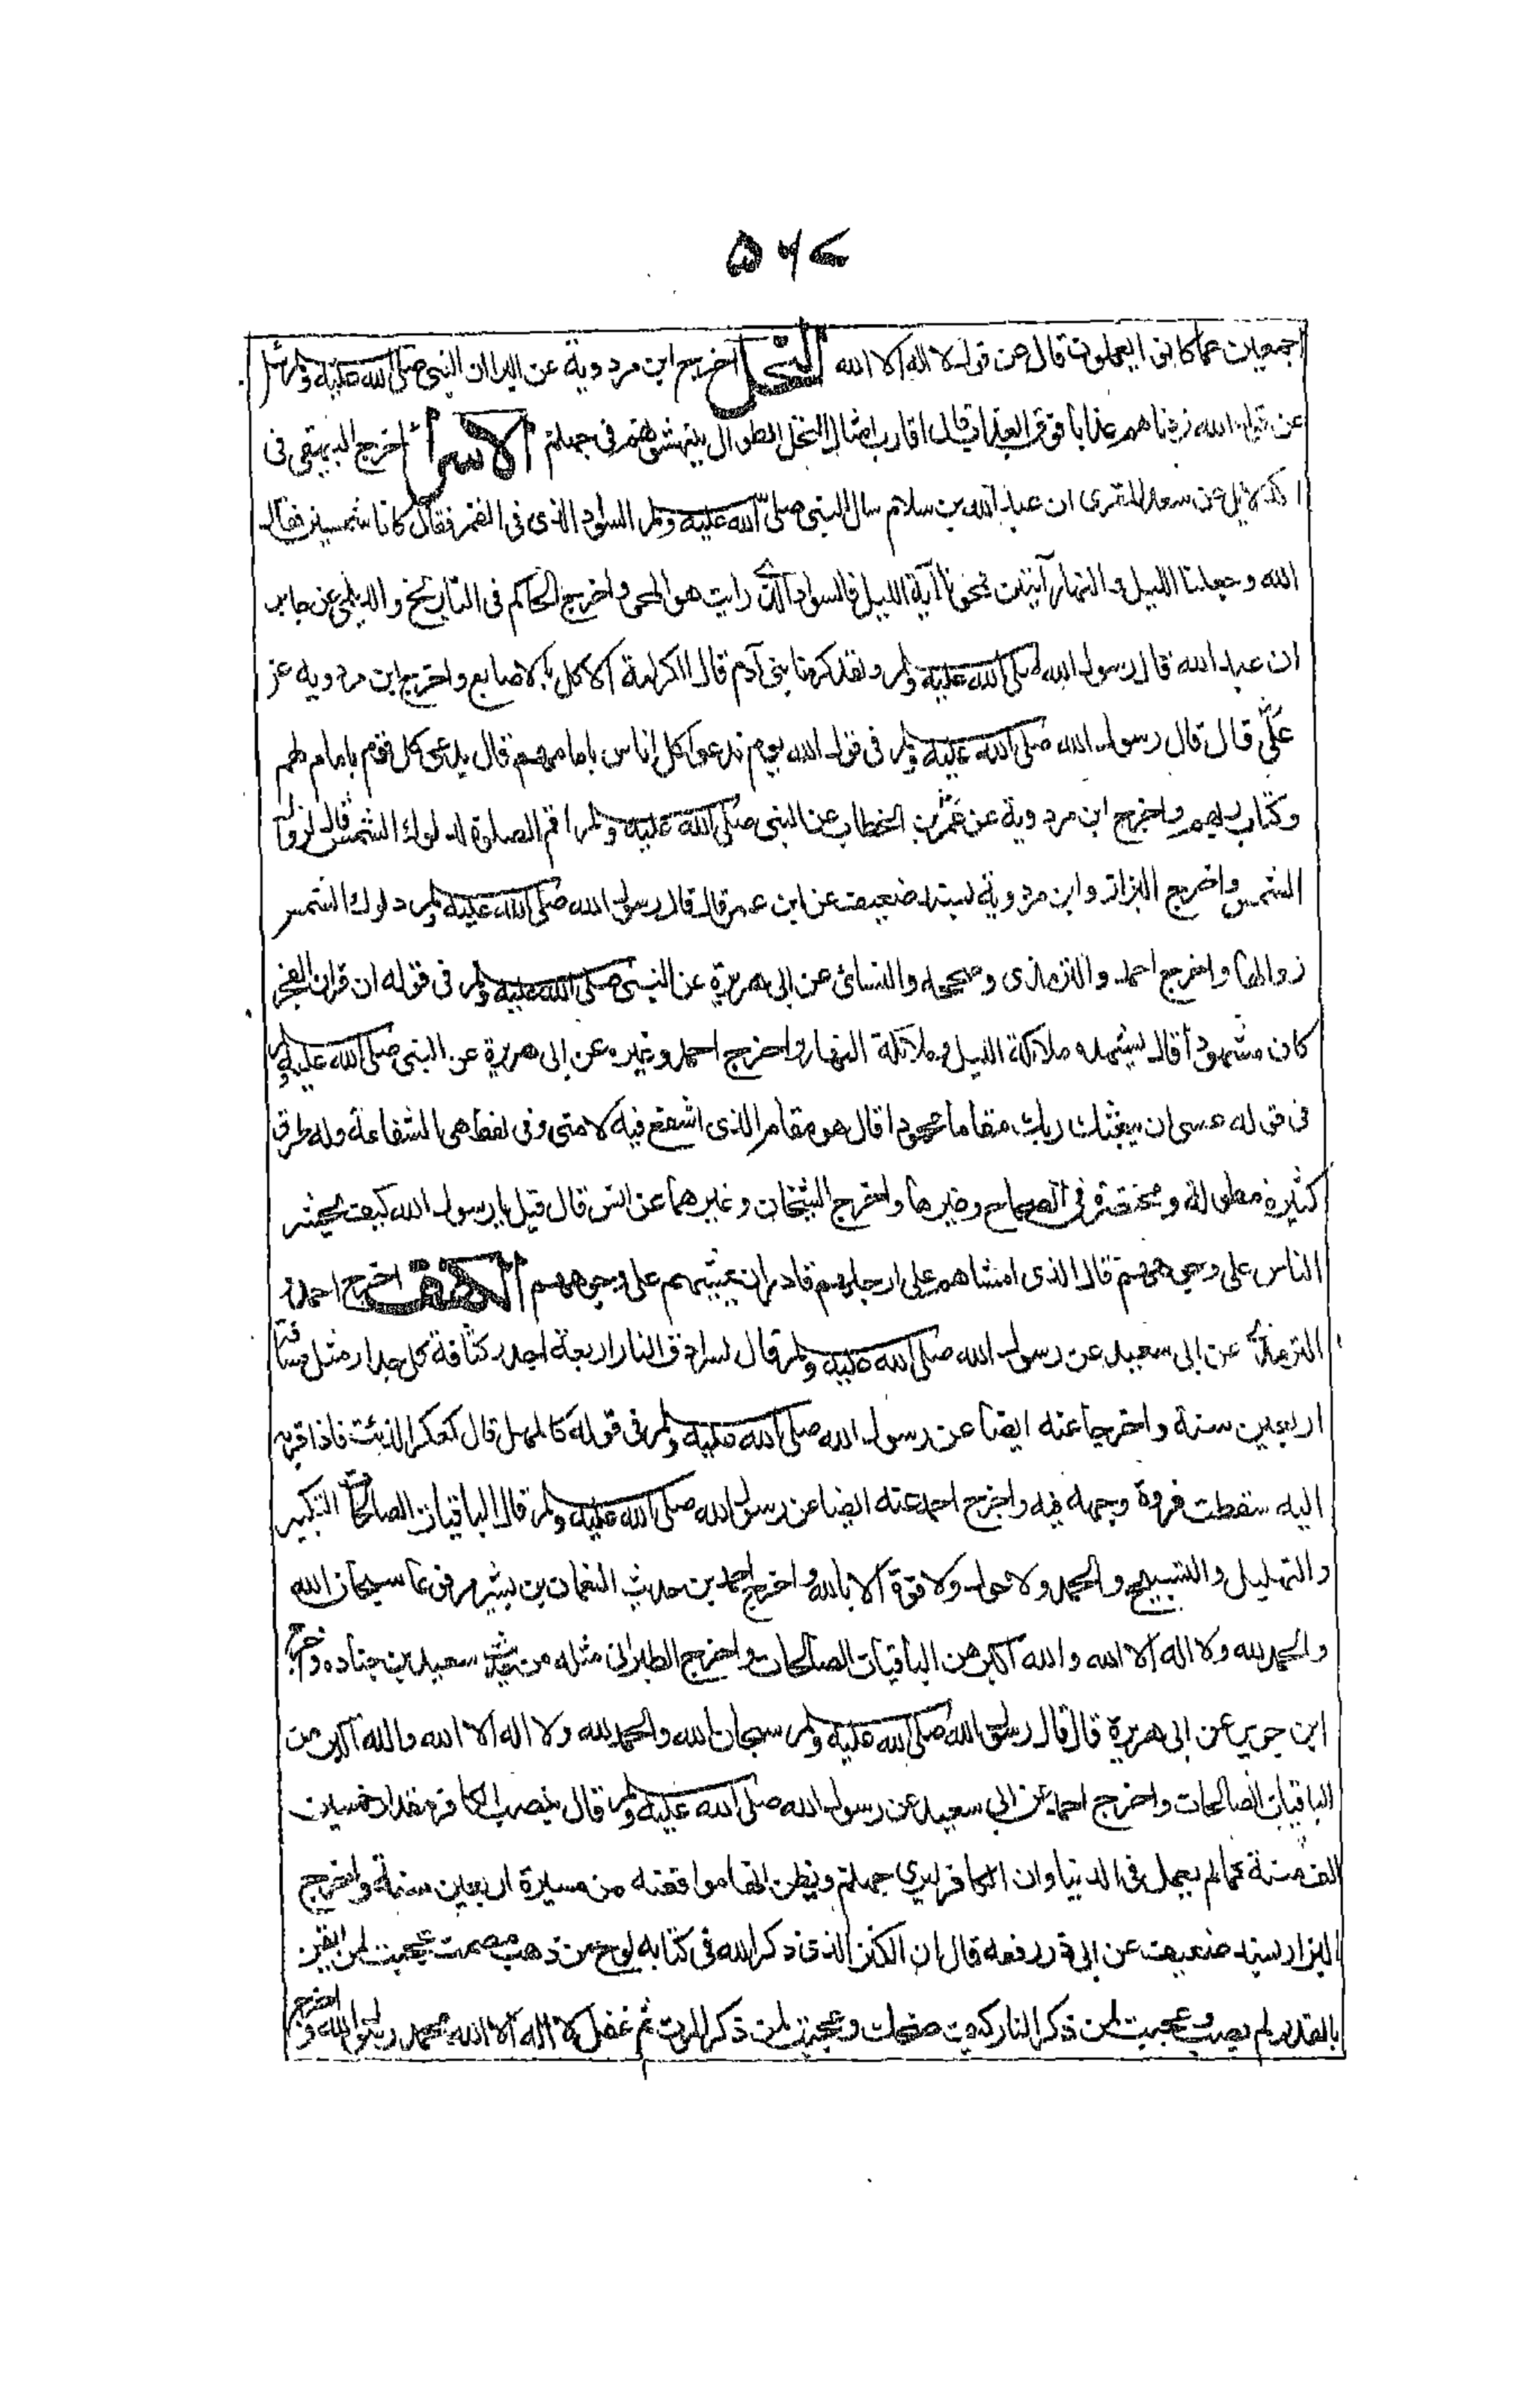 ۵۶۷
اجمعين عما كانوا يعملون قال عن قول لا اله الا الله النحل اخرج ابن مردوية عن البراان النبى صلى الله عليه وسلم سئل
عن قول الله زدناهم عذابا فوق العذاب قال عقارب امثال النخل الطوال ينهشونهم فى جهنم الاسرأ اخرج البيهقى فى
الدلايل عن سعيد المقبرى ان عبد الله بن سلام سال النبى صلى الله عليه وسلم السواد الذى فى القمر فقال كانا شمسين فقال
الله وجعلنا الليل والنهار آيتين فمحونا آية الليل فالسواد الذى رايت هو المحو واخرج الحاكم فى التاريخ والديلمى عن جابر
ان عبد الله قال رسول الله صلى الله عليه وسلم ولقد كرمنا بنى آدم قال الكرامة الاكل بالاصابع واخرج ابن مردويه عن
على قال قال رسول الله صلى الله عليه وسلم فى قول الله يوم ندعوا كل اناس بامامهم قال يدعى كل قوم بامام لهم
وكتاب ربهم واخرج ابن مردوية عن عمر بن الخطاب عن النبى صلى الله عليه وسلم اقم الصلوة لدلوك الشمس قال لزوال
الشمس واخرج البزار وابن مردوية بسند ضعيف عن ابن عمر قال قال رسول الله صلى الله عليه وسلم دلوك الشمس
زوالها واخرج احمد والترمذى وصححه والنسائى عن ابى هريرة عن النبى صلى الله عليه وسلم فى قوله ان قران الفجر
كان مشهودا قال تشهده ملائكة الليل وملائكة النهار واخرج احمد وغيره عن ابى هريرة عن النبى صلى الله عليه وسلم
فى قوله عسى ان يبعثك ربك مقاما محمودا قال هو مقام الذى اشفع فيه لامتى وفى لفظ هى الشفاعة وله طرق
كثيرة مطولة ومختصرة فى الصحاح وغيرها واخرج الشيخان وغيرهما عن انس قال قيل يا رسول الله كيف يحشر
الناس على وجوههم قال الذى امشاهم على ارجلهم قادر ان يمشيهم على وجوههم الكهف اخرج احمد و
الترمذى عن ابى سعيد عن رسول الله صلى الله عليه وسلم قال لسرادق النار اربعة اجدر كثافة كل جدار مثل مسافة
اربعين سنة واخرجا عنه ايضا عن رسول الله صلى الله عليه وسلم فى قوله كالمهل قال كعكر الزيت فاذا قربه
اليه سقطت فروة وجهه فيه واخرج احمد عنه ايضا عن رسول الله صلى الله عليه وسلم قال الباقيات الصالحات التكبير
والتهليل والتسبيح والحمد ولا حول ولا قوة الا بالله واخرج احمد بن حديث النعمان بن بشير مرفوعا سبحان الله
والحمد لله ولا اله الا الله والله اكبر هن الباقيات الصالحات واخرج الطبرانى مثله من حديث سعيد بن جناده واخرج
ابن جرير عن ابى هريرة قال قال رسول الله صلى الله عليه وسلم سبحان الله والحمد لله ولا اله الا الله والله اكبر من
الباقيات الصالحات واخرج احمد عن ابى سعيد عن رسول الله صلى الله عليه وسلم قال ينصب الكافر مقدار خمسين
الف سنة كما لم يعمل فى الدنيا وان الكافر ليرى جهنم ويظن انها مواقعته من مسيرة اربعين سنة واخرج
البزار بسند ضعيف عن ابى ذر رفعه قال ان الكنز الذى ذكر الله فى كتابه لوح من ذهب مصمت عجبت لمن ايقن
بالقدر لم نصب وعجبت لمن ذكر النار كيف ضحك وعجبت لمن ذكر الموت ثم غفل لا اله الا الله محمد رسول الله واخرج